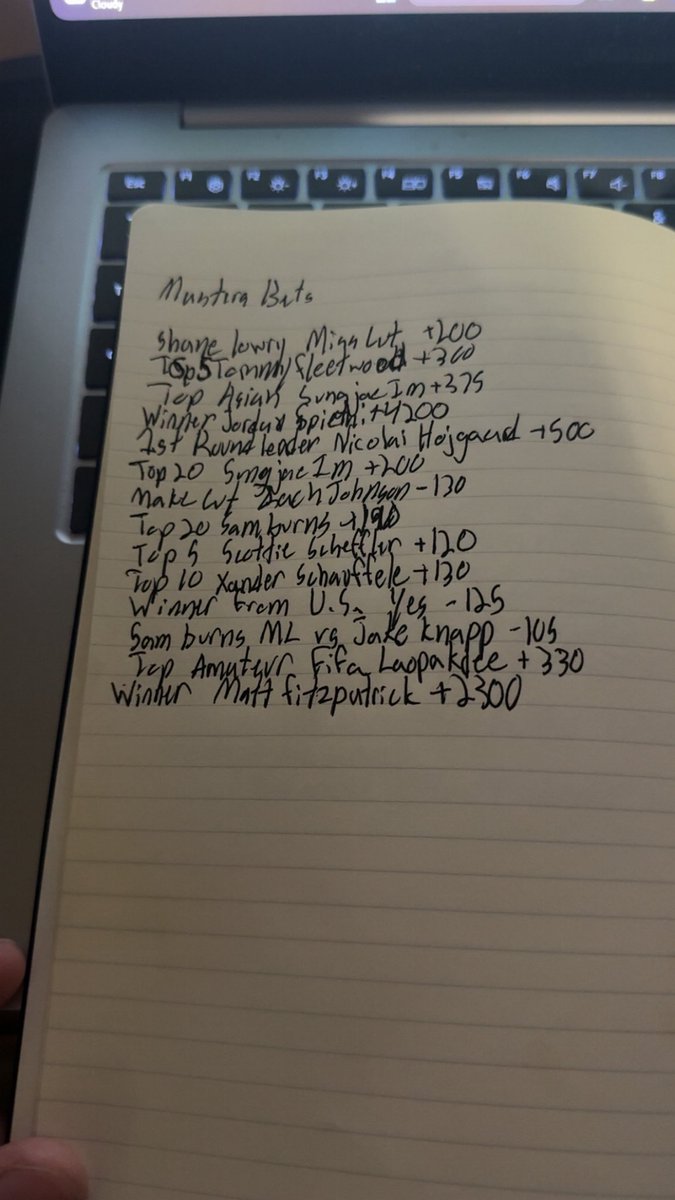 Cloudy
Esc F1 F2 F3 F4 F5 F6 F7 F8
&
Bets
Shane lowry Miss Cut +200
Top 5 Tommy fleetwood +360
Top Asian Sungjae Im +375
Winner Jordan Spieth +4200
1st Round leader Nicolai Hojgaard +500
Top 20 Sungjae Im +200
Make Cut Zach Johnson -130
Top 20 Sam burns
Top 5 Scottie Scheffler +120
Top 10 Xander Schauffele +130
Winner from U.S. Yes -125
Sam burns ML vs Jake Knapp -105
Top Amateur Fifa Laopakdee +330
Winner Matt fitzpatrick +2300